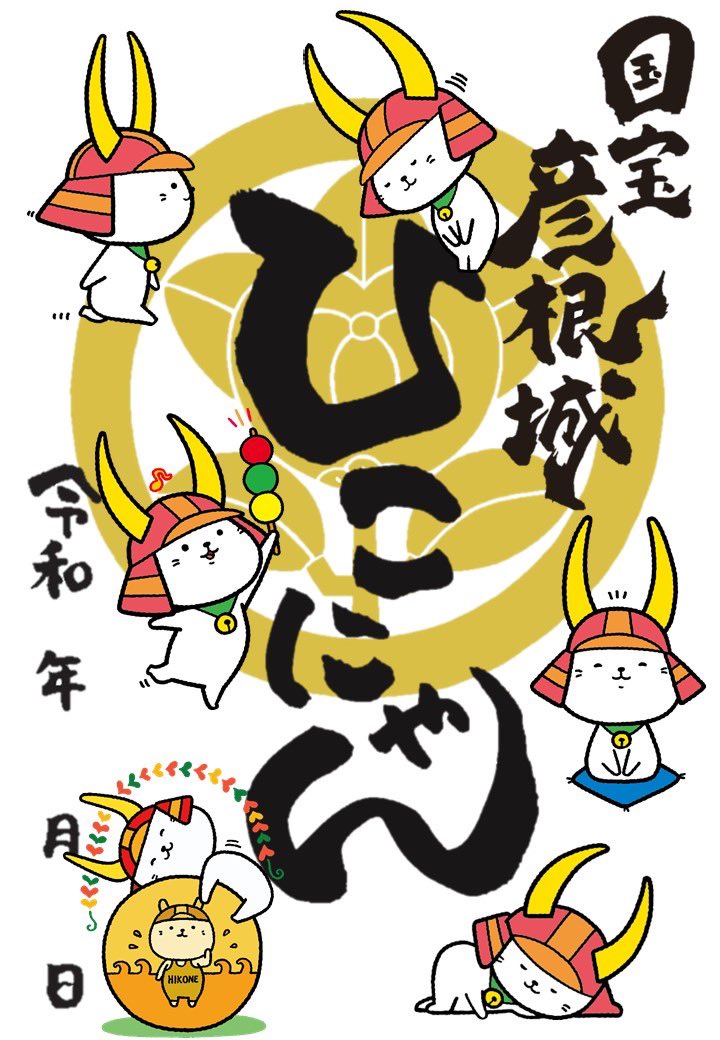 国宝
彦根城
ひこにゃん
令和 年 月 日
HIKONE